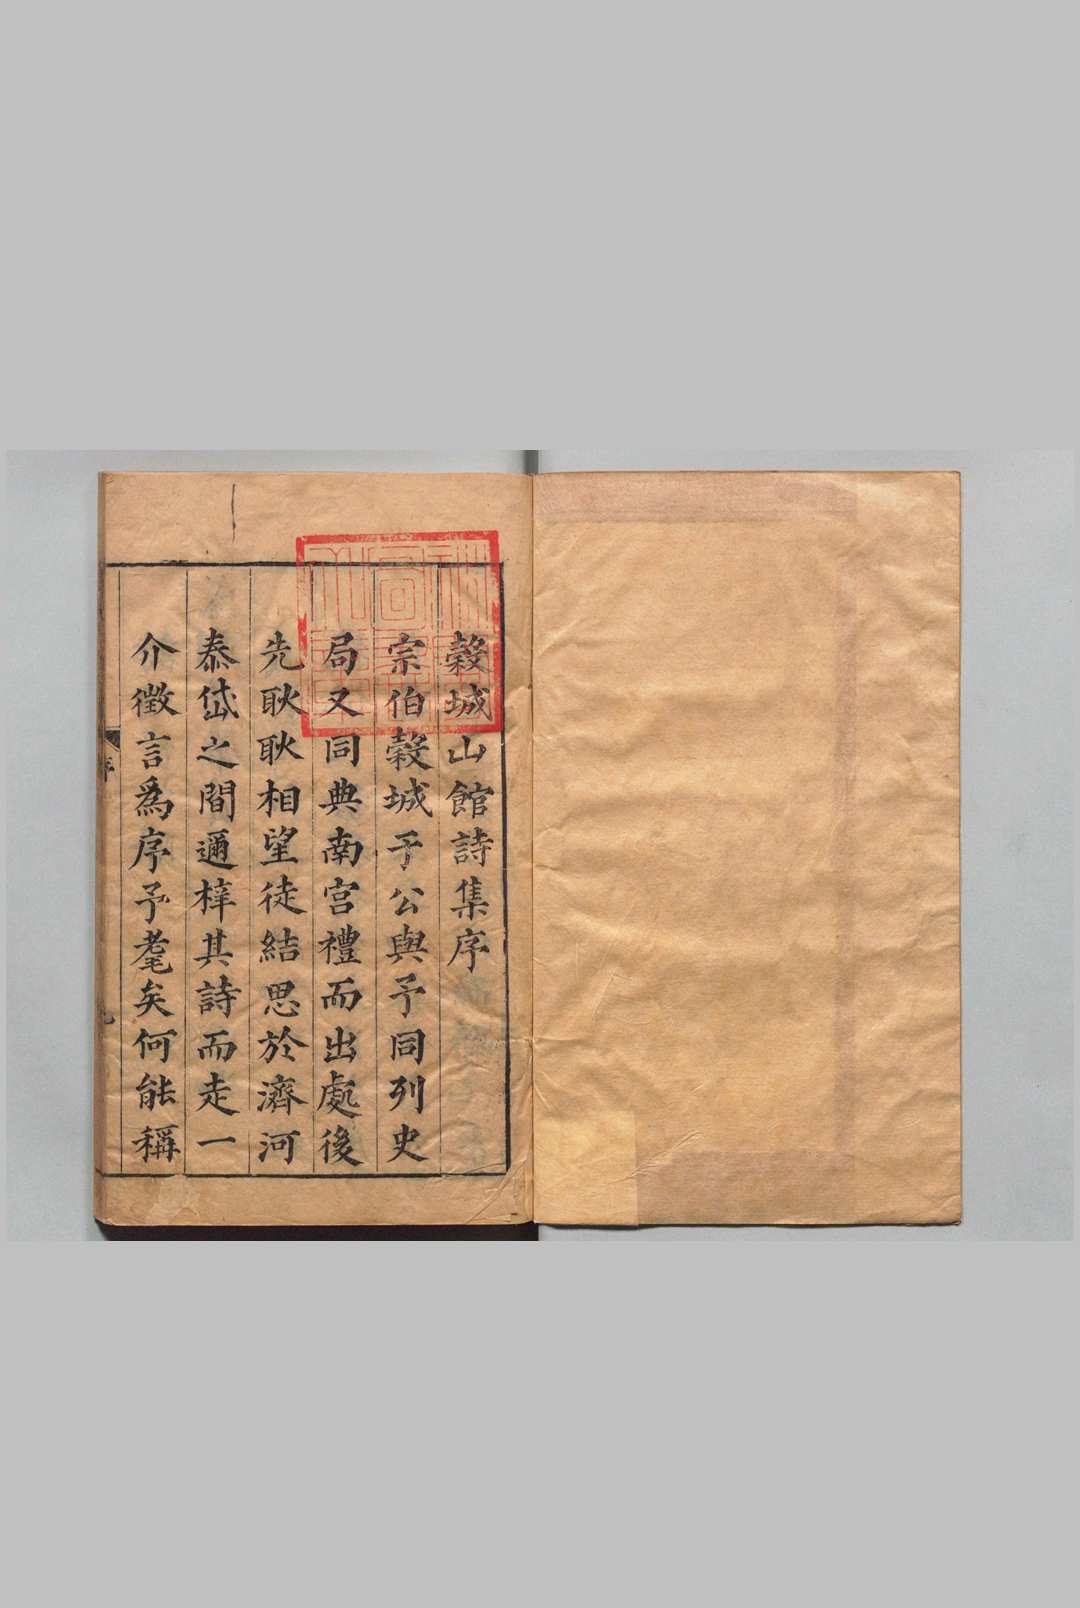 穀城山館詩集序
宗伯穀城于公與予同列史
局又同典南宫禮而出處後
先耿耿相望徒結思於濟河
泰岱之間邇梓其詩而走一
介徵言爲序予耄矣何能稱
序